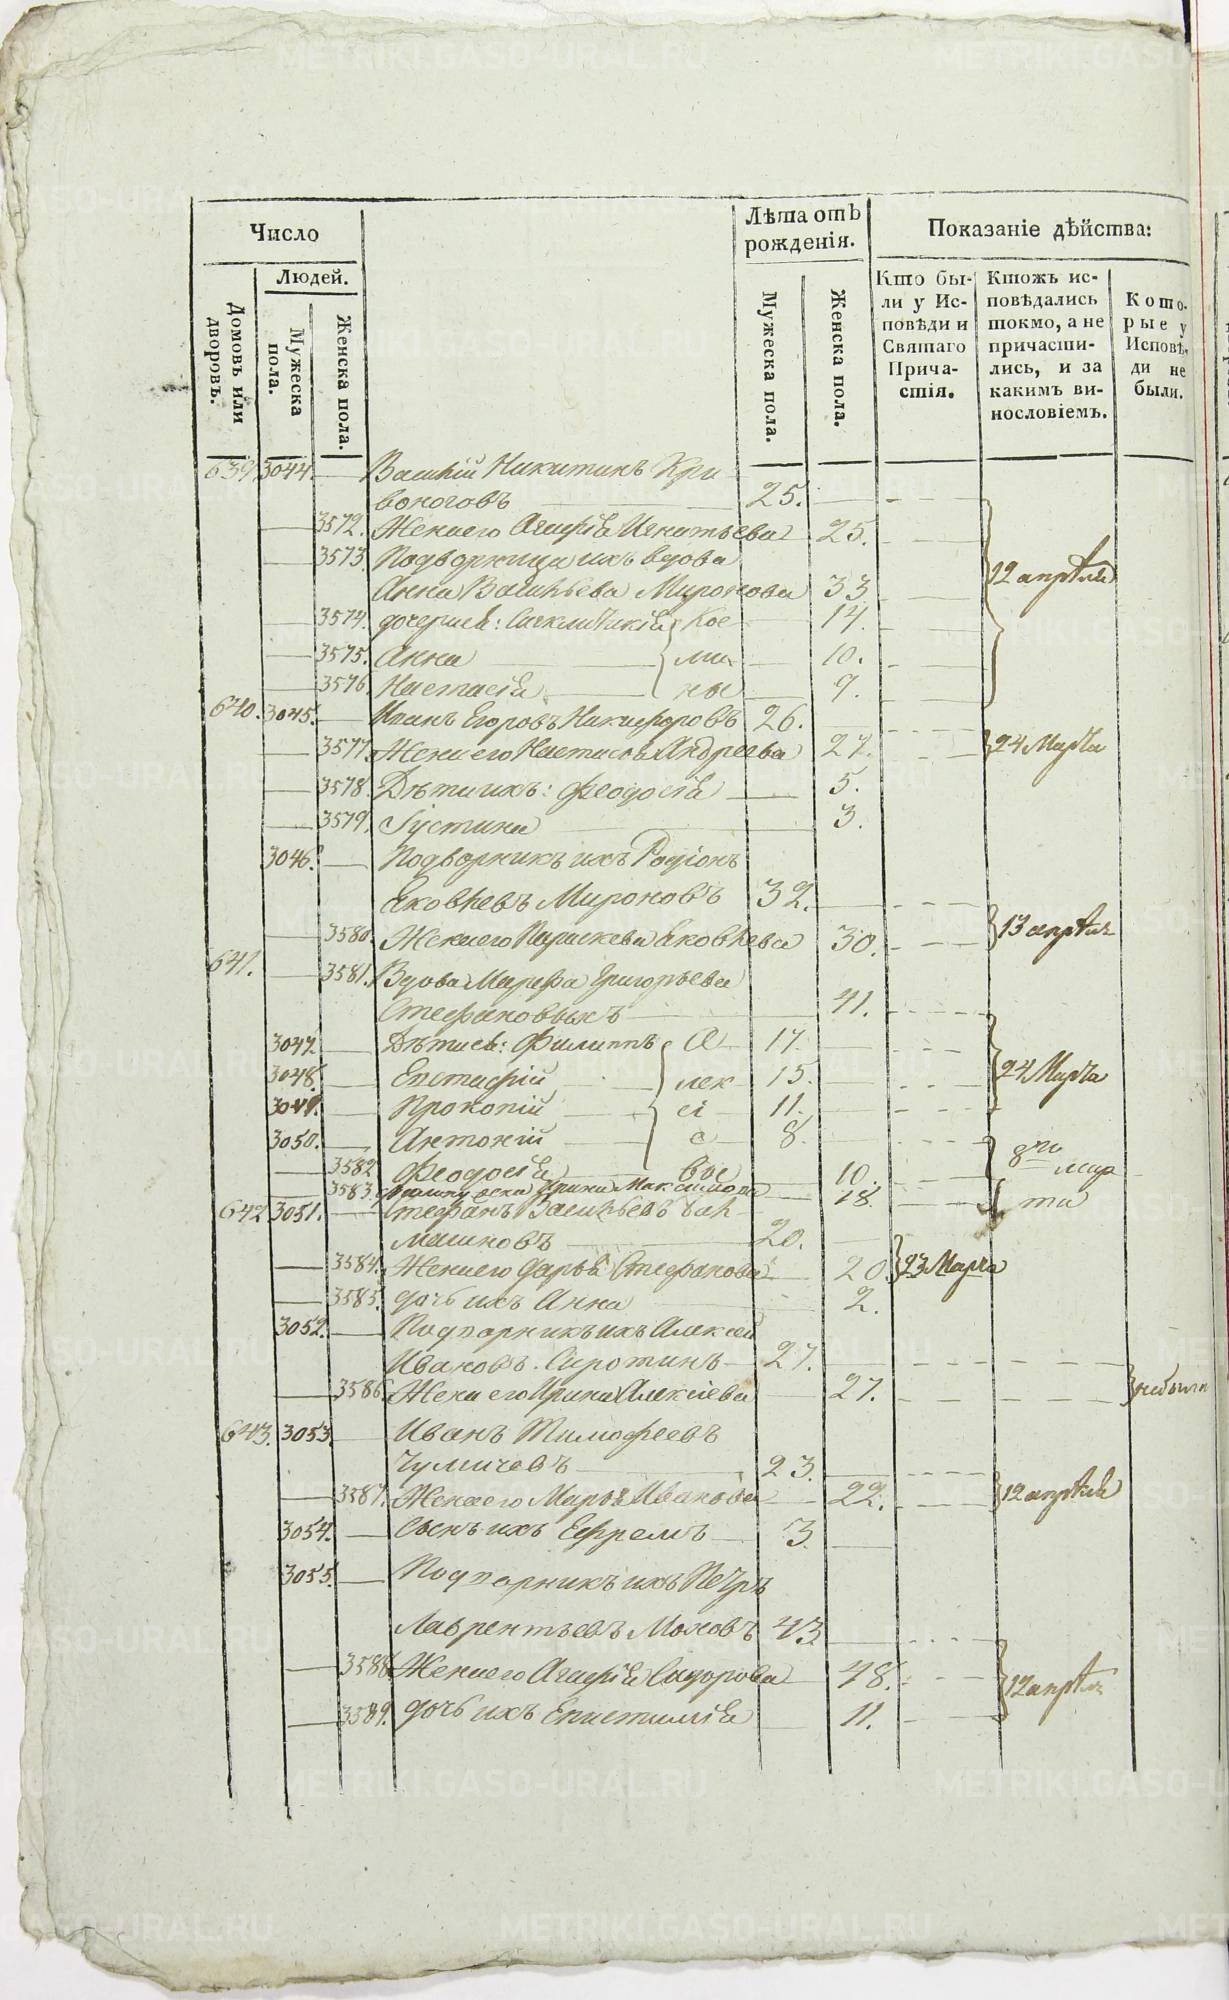 Число
Людей.
Домовъ или дворовъ.
Мужеска пола.
Женска пола.
Лѣта отъ рожденія.
Мужеска пола.
Женска пола.
Показаніе дѣйства:
Кто бы-
ли у Ис-
повѣди и
Святаго
Прича-
стія.
Ктожъ ис-
повѣдались
токмо, а не
причасти-
лись, и за
какимъ ви-
нословіемъ.
Кото-
рые у
Исповѣ-
ди не
были.
639. 3044. Василій Никитинъ Кри
воноговъ 25.
3572. Жена его Агафія Игнатьева 25.
3573. Подворница ихъ вдова
Анна Васильева Миронова 33 12 апрѣля
3574. дочери ея: Сагклитикія Кое 14.
3575. Анна ми 10.
3576. Настасія ны 9.
640. 3045. Иванъ Егоровъ Никифоровъ 26.
3577. Жена его Настасья Андреева 27. 24 Марта
3578. Дѣти ихъ: Феодосія 5.
3579. Іустина 3.
3046. Подворникъ ихъ Родіонъ
Яковлевъ Мироновъ 32.
3580. Жена его Параскева Яковлева 30. 13 апрѣля
641. 3581. Вдова Марфа Григорьева
Стефановыхъ 41.
3047. Дѣти ея: Филиппъ А 17.
3048. Евстафій лек 15. 24 Марта
3049. Прокопій сі 11.
3050. Антоній е 8.
3582 Феодосія вы 10. 8го мар
3583. Ирина Максимова 18. та
642. 3051. Стефанъ Васильевъ Баль
20.
3584. Жена его Дарья Стефанова 20. 23 Марта
3585. дочь ихъ Анна 2.
3052. Подворникъ ихъ Алексей
Ивановъ Сиротинъ 27.
3586 Жена его Ирина Алексіева 27. небыли
643. 3053. Иванъ Тимофеевъ
Чумичевъ 23.
3587. Жена его Марья Иванова 22. 12 апрѣля
3054. сынъ ихъ Ефремъ 3.
3055. Подворникъ ихъ Петръ
Лаврентьевъ Моховъ 43
3588. Жена его Агафія Сидорова 48. 12 апрѣля
3589. дочь ихъ Епистимія 11.
METRIKI.GASO-URAL.RU